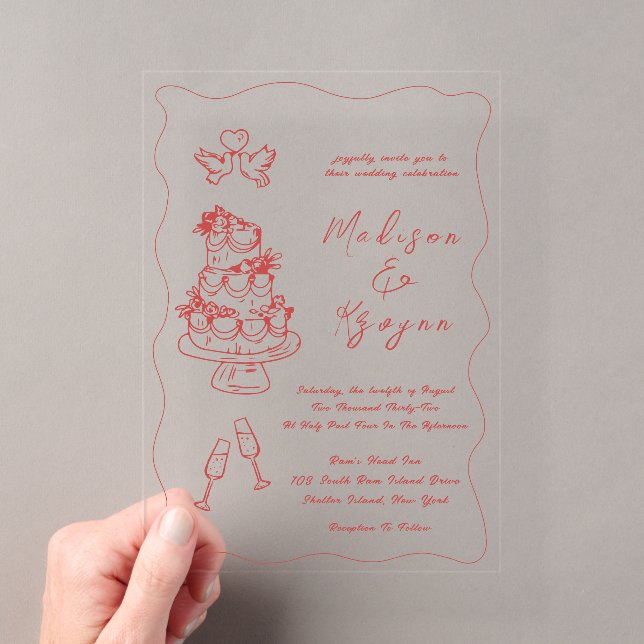 Joyfully invite you to
their wedding celebration
Madison
&
Kzoynn
Saturday, the twelfth of August
Two Thousand Thirty-Two
At Half Past Four In The Afternoon
Ram's Head Inn
South Ram Island Drive
Shelter Island, New York
Reception To Follow